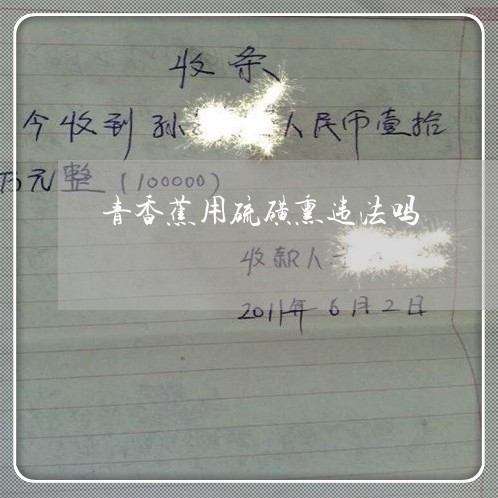 收条
今收到孙 人民币壹拾
万元整(100000)
青香蕉用硫磺熏违法吗
收款人
2011年6月2日